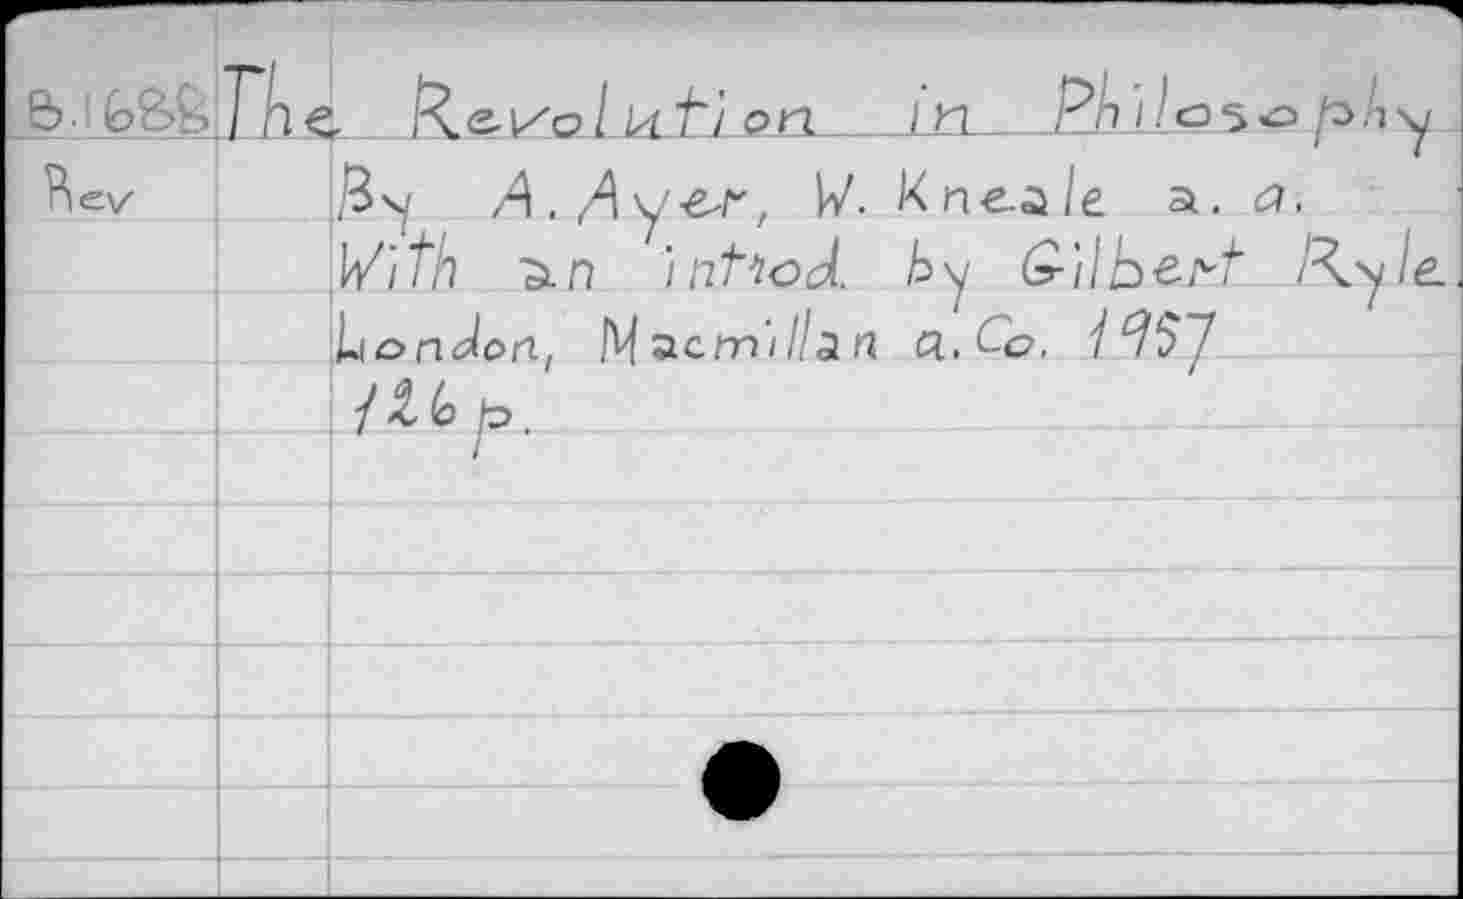 B.1688 The Revolution in Philosophy
Rev By A. Ayer, W. Kneale a. a.
With an introd. by Gilbert Ryle.
London, Macmillan a. Co. 1957
126 p.